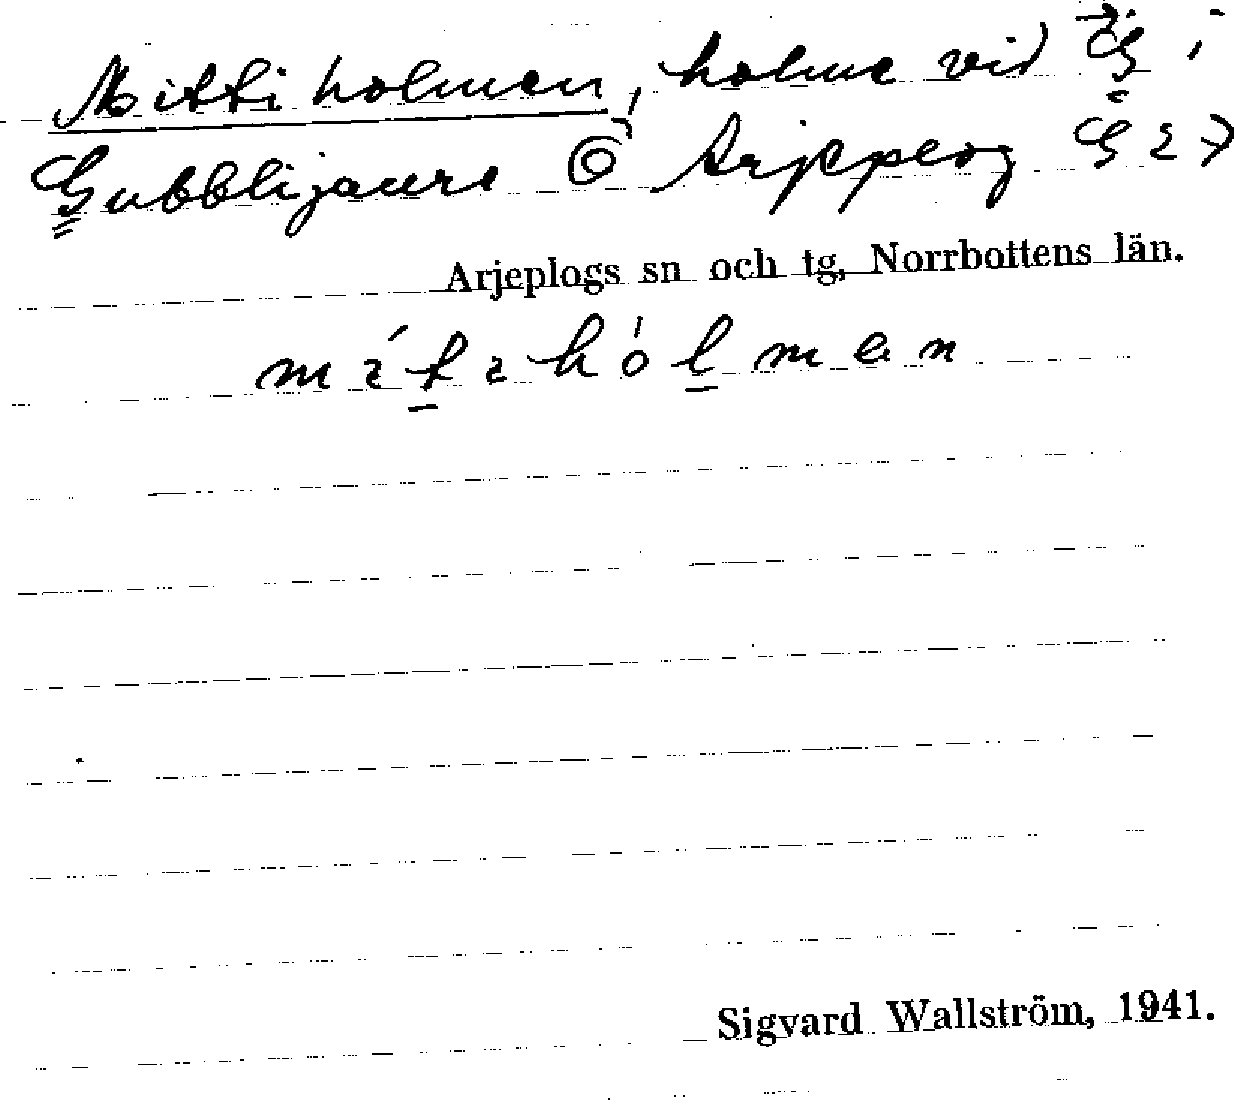 Mittiholmen, holme vid G i
Gubblijaure © Arjeplog G 27
Arjeplogs sn och tg, Norrbottens län.
Sigvard Wallström, 1941.